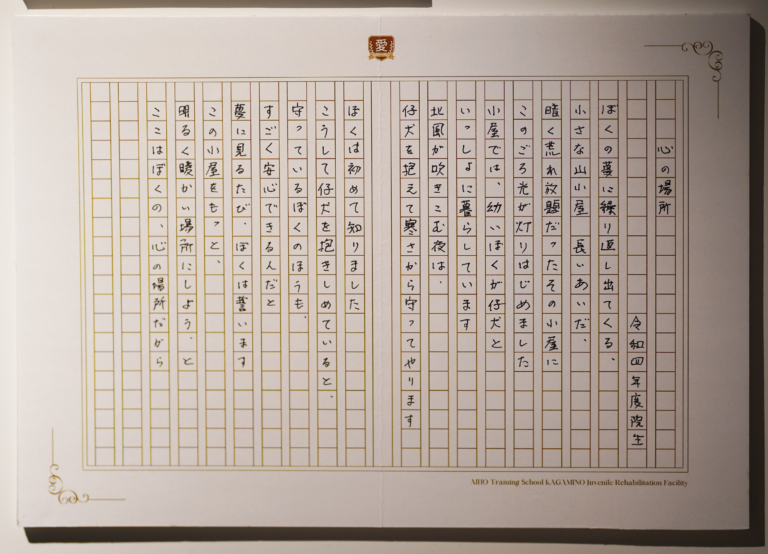 愛
心の場所
令和四年度院生
ぼくの夢に繰り返し出てくる、
小さな山小屋 長いあいだ、
暗く荒れ放題だったその小屋に
このごろ光が灯りはじめました
小屋では、幼いぼくが仔犬と
いっしょに暮らしています
北風が吹きこむ夜は、
仔犬を抱えて寒さから守ってやります
ぼくは初めて知りました
こうして仔犬を抱きしめていると、
守っているぼくのほうも、
すごく安心できるんだと
夢に見るたび、ぼくは誓います
この小屋をもっと、
明るく暖かい場所にしよう、と
ここはぼくの、心の場所だから
AIHO Training School KAGAMINO Juvenile Rehabilitation Facility